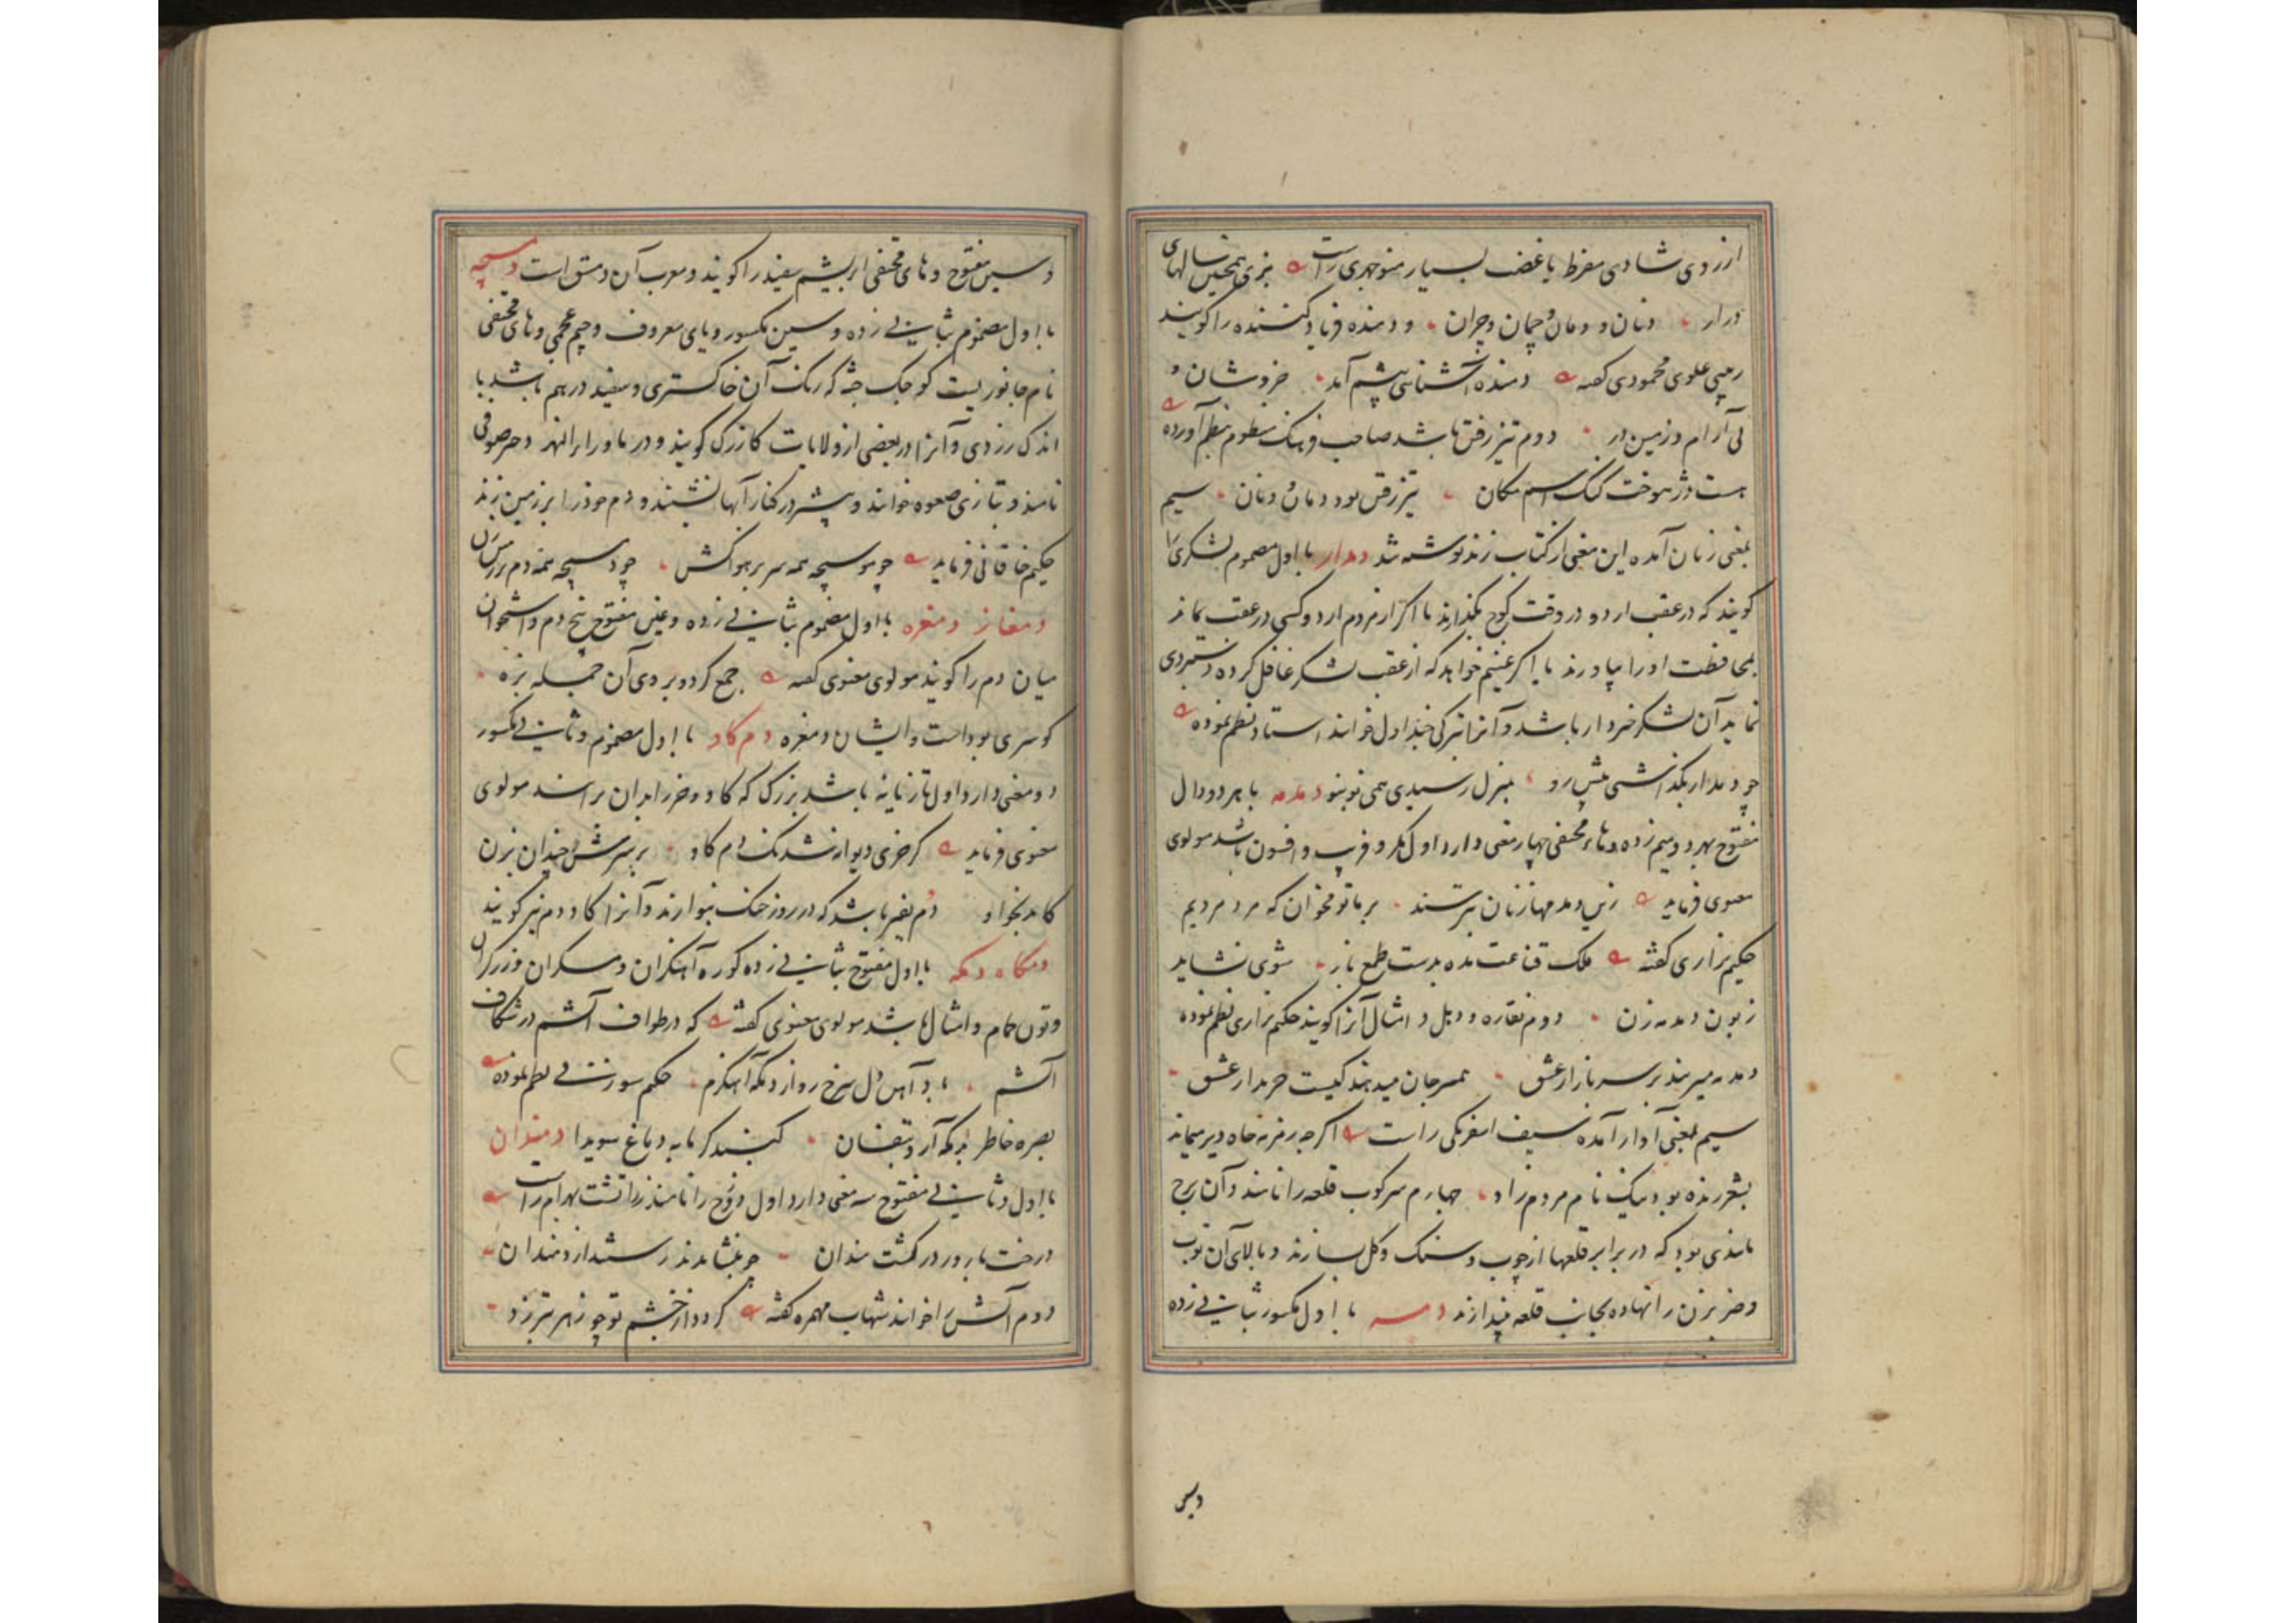 از روی شادی مفرط یا غضب بسیار منوچهری راست بزی همچنین سالهای
دراز دنان و دمان و چمان و چران و دمنده فریاد کننده را گویند
ربیبی علوی محمودی گفته دمنده آتشناسی پیش آمد خروشان و
بی آرام و زمین در دوم تیز رفتن باشد صاحب فرهنگ منظوم بنظم آورده
هست دژهوخت گنگ اسم مکان تیز رفتن بود دمان و دنان سیم
بمعنی زمان آمده این معنی از کتاب زند نوشته شد دمدار با اول مضموم لشکری را
گویند که در عقب اردو در وقت کوچ بگذارند تا اگر از مردم اردو کسی در عقب بماند
بمحافظت او را بیاورند یا اگر غنیم خواهد که از عقب لشکر غافل کرده دستبردی
نماید آن لشکر خبردار باشد و آنرا بترکی چنداول خوانند استاد نظم نموده
چو دمدار بگذاشتی پیش رو بمنزل رسیدی همی نو بنو دمدمه با هر دو دال
مفتوح بهر دو میم زده و هاء مختفی چهار معنی دارد اول مکر و فریب و افسون باشد مولوی
معنوی فرماید زین دمدمها زنان بترسند بر ما تو مخوان که مرد مردیم
حکیم نزاری گفته ملک قناعت مده بدست طمع باز شوی نشاید
زبون دمدمه زن دوم نقاره و دهل و امثال آنرا گویند حکیم نزاری نظم نموده
دمدمه میزنند بر سر بازار عشق عمر جان میدهند کیست خریدار عشق
سیم بمعنی آواز آمده سیف اسفرنگی راست اگرچه دیر میماند
بشعر زنده بود نیک نام مردم راد چهارم سرکوب قلعه را نامند و آن برج
مانندی بود که در برابر قلعها از چوب و سنگ و گل بسازند و بالای آن توپ
و ضربزن را نهاده بجانب قلعه بیندازند دمسه با اول مکسور بثانی زده
وسین
و سین مفتوح و های مختفی ابریشم سفید را گویند و معرب آن دمسق است دمسیچه
با اول مضموم بثانی زده و سین مکسور و یای معروف و جیم عجمی و های مختفی
نام جانوریست کوچک جثه که رنگ آن خاکستری و سفید در هم باشد با
اندک زردی و آنرا در بعضی از ولایات کازرک گویند و در ماوراءالنهر دختر صوفی
نامند و بتازی صعوه خوانند و بیشتر در کنار آبها نشیند و دم خود را بر زمین زند
حکیم خاقانی فرماید چو موسیچه همه سر بر هوا کش چو دمسیچه همه دم بر زمین زن
دمغاز دمغزه با اول مضموم بثانی زده و غین مفتوح بیخ دم و استخوان
میان دم را گویند مولوی معنوی گفته جمع کرد و بر وی آن جمله بزه
کو سری بوداست و ایشان دمغزه دم گاو با اول مضموم و ثانی مکسور
دو معنی دارد اول تازیانه باشد بزرگ که گاو و خر را بدان برانند مولوی
معنوی فرماید گر خری دیوانه شد نک دم گاو بر سرش چندان بزن
کاید بخواو دوم نفیر باشد که در روز جنگ بنوازند و آنرا گاو دم نیز گویند
دمگاه دمگه با اول مفتوح بثانی زده کوره آهنگران و مسگران و زرگران
و تون حمام و امثال باشد مولوی معنوی گفته که در طواف آتشم در شکاف
آتشم باد آهن دل سرخ رو از دمگه آهنگرم حکیم سوزنی نظم نموده
بصره خاطر بدمگه آر و تبفسان کنند گرمابه دماغ سویدا دمندان
با اول و ثانی مفتوح سه معنی دارد اول دوزخ را نامند زراتشت بهرام راست
درخت بارور در گشت مندان
دوم آتش را خوانند شهاب مهمره گفته گردد از خشم تو چو زهر